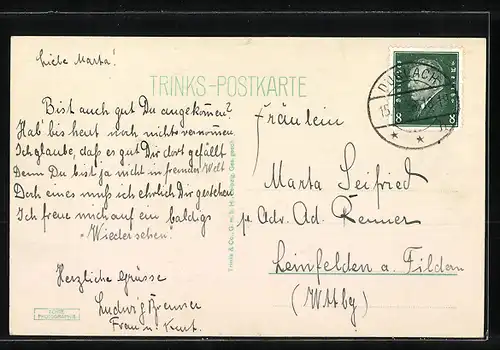 Liebe Marta!
TRINKS-POSTKARTE
Bist auch gut Du angekommen?
Hab' bis heut noch nichts vernommen
Ich glaube, daß es gut Dir dort gefällt
Denn Du bist ja nicht in fremder Welt
Doch eines muß ich ehrlich Dir gestehen
Ich freue mich auf ein baldigs
"Wiedersehen".
Herzliche Grüsse
Ludwig Brenner
Frau u. Kurt.
Trinks & Co. G.m.b.H. Leipzig. Ges. gesch.
Fräulein
Marta Seifried
p. Adr. Ad. Renner
Leinfelden a. Fildern
(Wttbg)
DURLACH
15.
8 8
ECHTE
PHOTOGRAPHIE